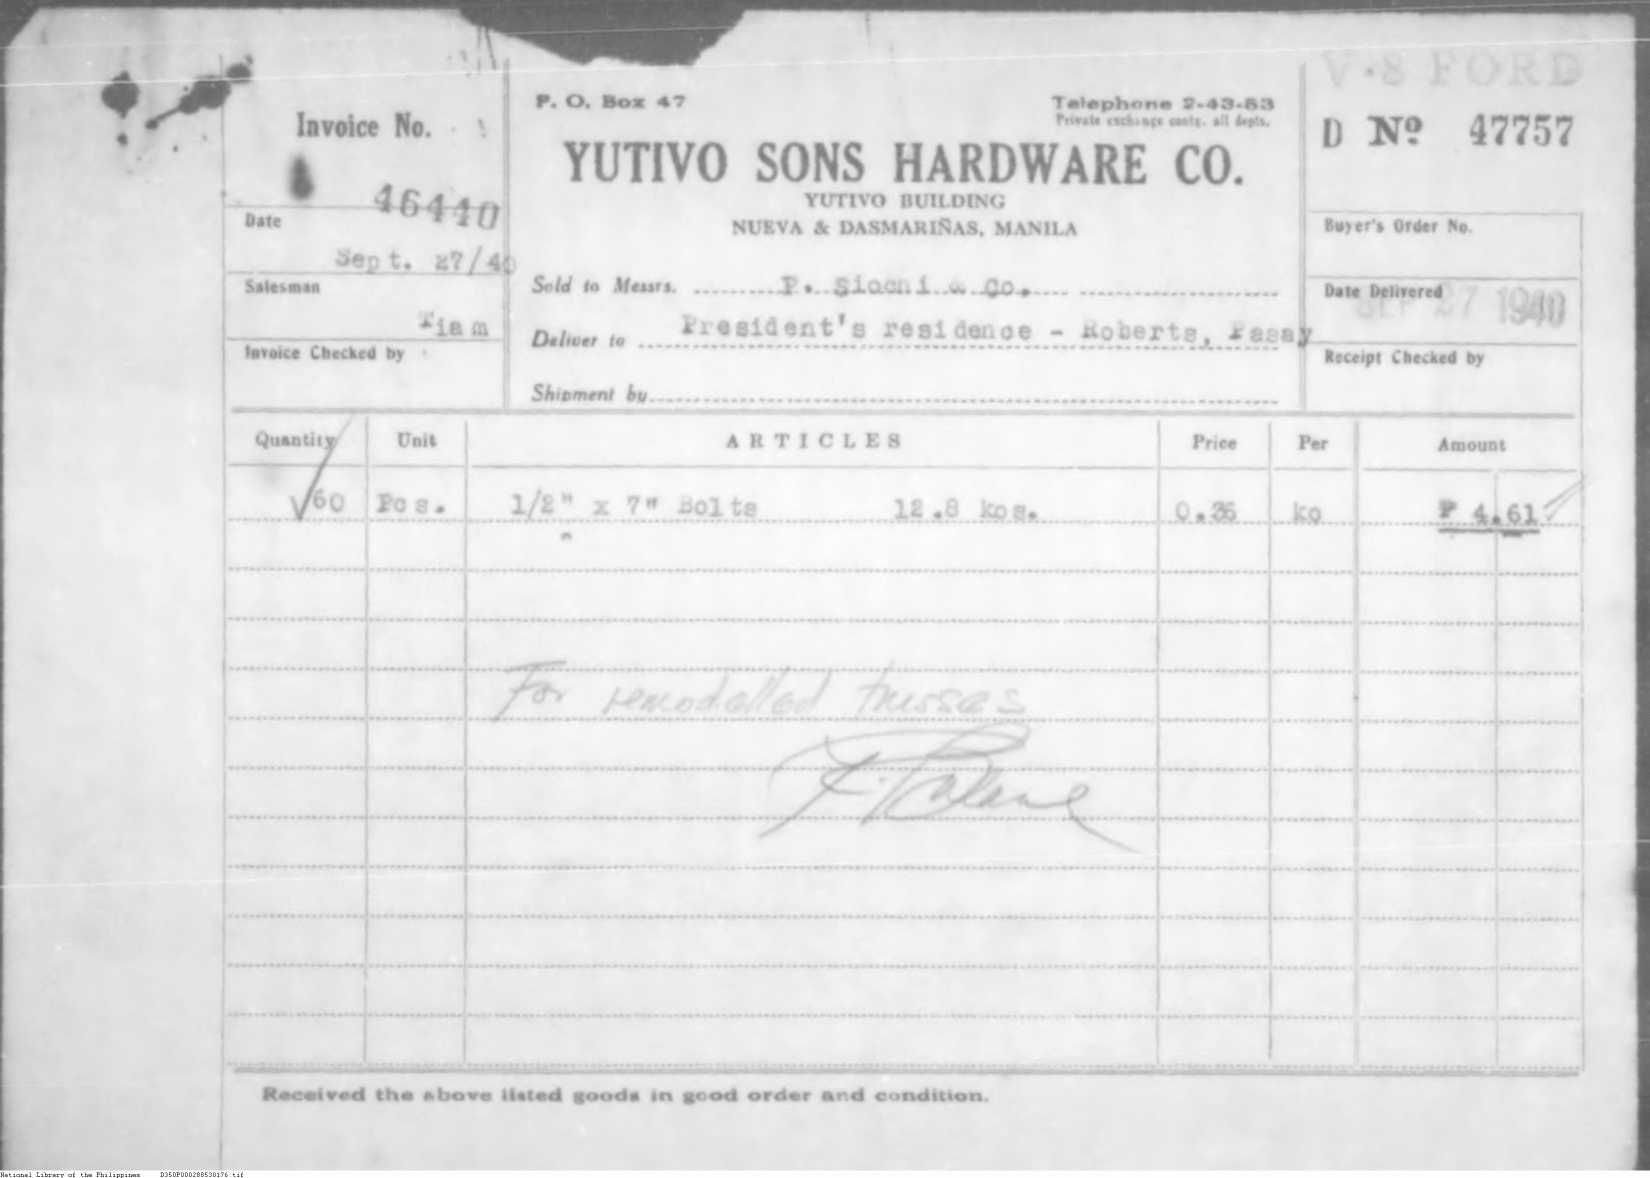 V-8 FORD
P. O. Box 47
Telephone 2-43-83
Private exchange conts. all depts.
Invoice No.
46440
D Nº 47757
YUTIVO SONS HARDWARE CO.
YUTIVO BUILDING
NUEVA & DASMARIÑAS, MANILA
Date
Sept. 27/40
Buyer's Order No.
Salesman
Tiam
Sold to Messrs. P. Siochi & Co.
Date Delivered
SEP 27 1940
Deliver to President's residence - Roberts, Pasay
Invoice Checked by
Receipt Checked by
Shipment by
Quantity Unit ARTICLES Price Per Amount
60 Pcs. 1/2" x 7" Bolts 12.8 kos. 0.36 ko ₱ 4.61
For remodelled trusses
Received the above listed goods in good order and condition.
National Library of the Philippines D350P000288530176.tif